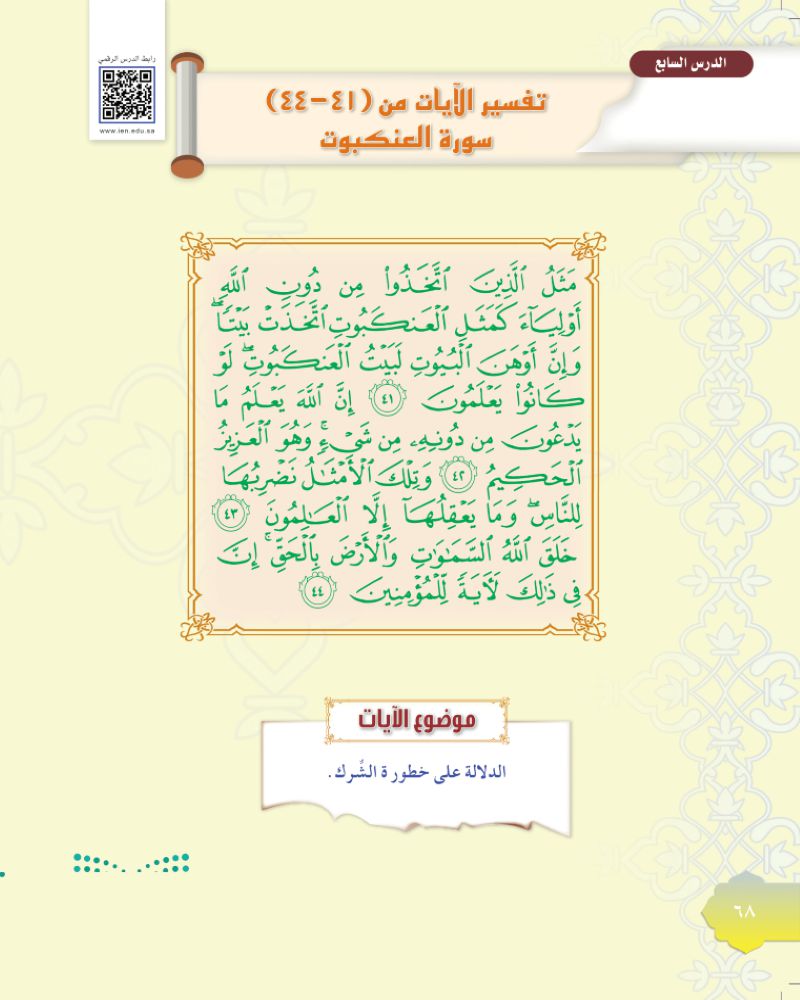 رابط الدرس الرقمي
www.ien.edu.sa
الدرس السابع
تفسير الآيات من (٤١-٤٤)
سورة العنكبوت
مَثَلُ الَّذِينَ اتَّخَذُوا مِن دُونِ اللَّهِ
أَوْلِيَاءَ كَمَثَلِ الْعَنكَبُوتِ اتَّخَذَتْ بَيْتًا ۖ
وَإِنَّ أَوْهَنَ الْبُيُوتِ لَبَيْتُ الْعَنكَبُوتِ ۖ لَوْ
كَانُوا يَعْلَمُونَ ٤١ إِنَّ اللَّهَ يَعْلَمُ مَا
يَدْعُونَ مِن دُونِهِ مِن شَيْءٍ ۚ وَهُوَ الْعَزِيزُ
الْحَكِيمُ ٤٢ وَتِلْكَ الْأَمْثَالُ نَضْرِبُهَا
لِلنَّاسِ ۖ وَمَا يَعْقِلُهَا إِلَّا الْعَالِمُونَ ٤٣
خَلَقَ اللَّهُ السَّمَاوَاتِ وَالْأَرْضَ بِالْحَقِّ ۚ إِنَّ
فِي ذَٰلِكَ لَآيَةً لِّلْمُؤْمِنِينَ ٤٤
موضوع الآيات
الدلالة على خطورة الشِّرك.
٦٨